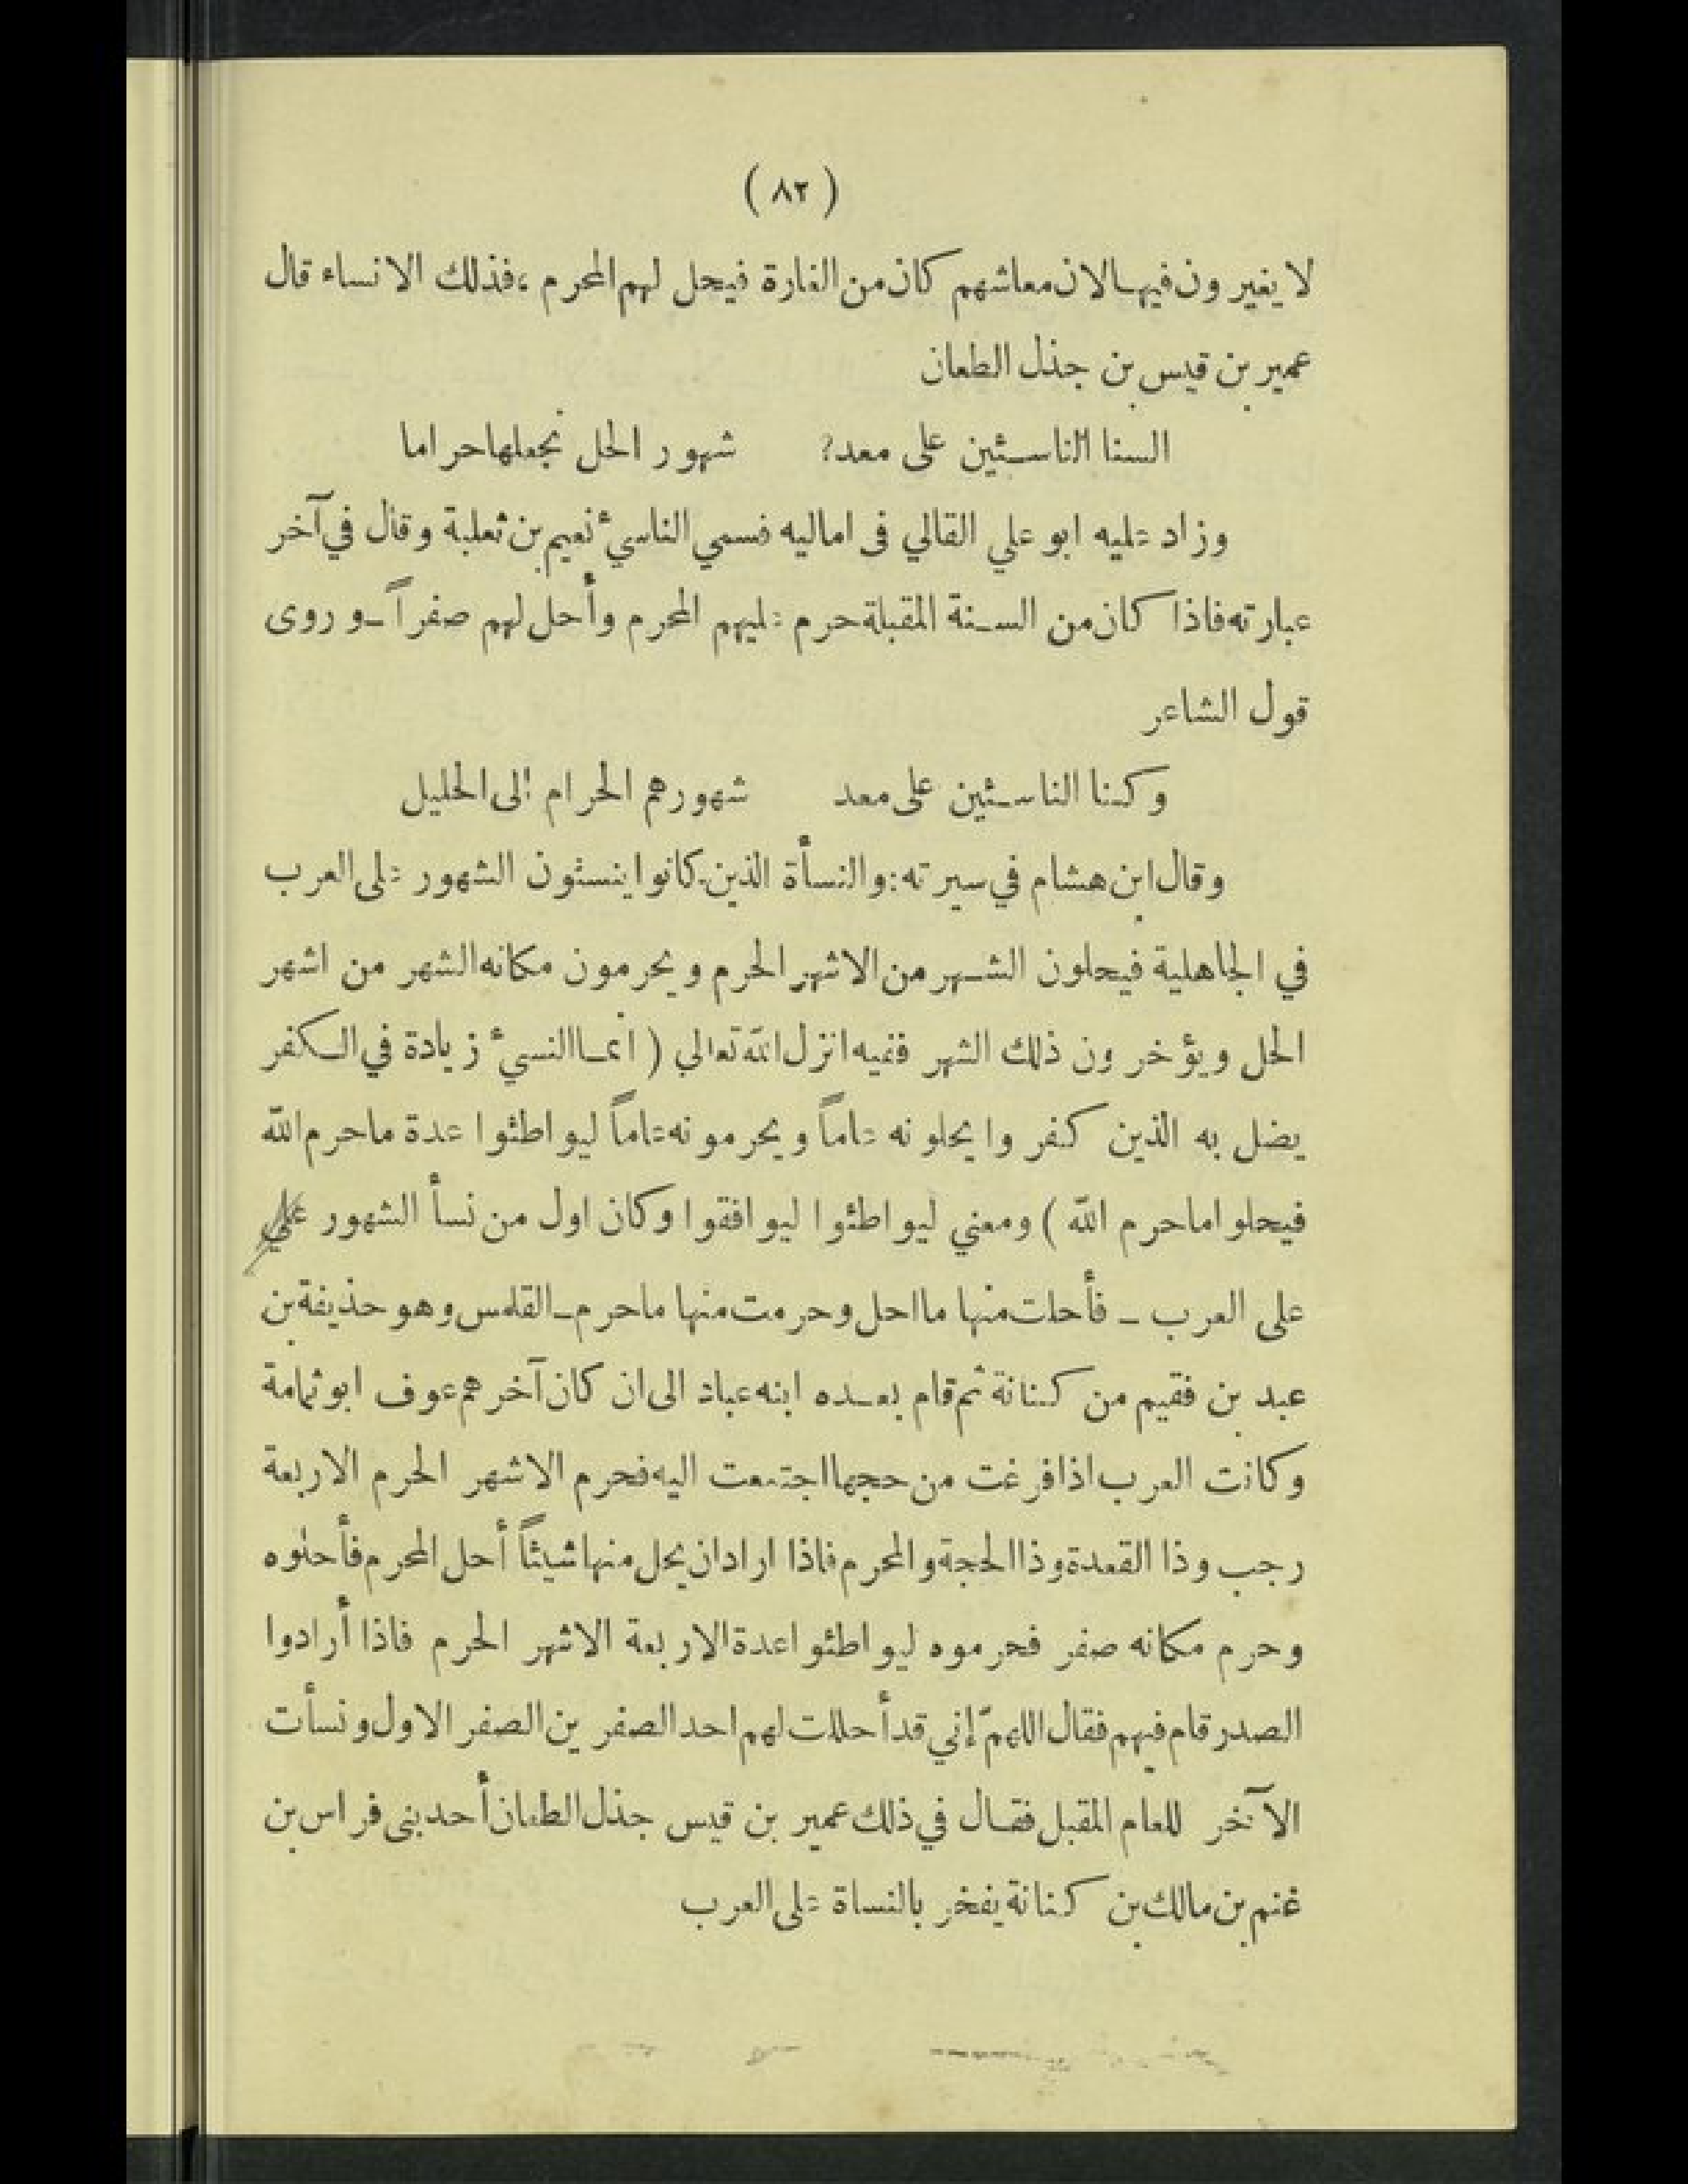 ( ٨٢ )
لا يغيرون فيها لان معاشهم كان من الغارة فيحل لهم المحرم ، فذلك الانساء قال
عمير بن قيس بن جذل الطعان
السنا الناسئين على معد? شهور الحل نجعلها حراما
وزاد عليه ابو علي القالي فى اماليه فسمي الناسئ نعيم بن ثعلبة وقال في آخر
عبارته فاذا كان من السنة المقبلة حرم عليهم المحرم وأحل لهم صفراً ـ وروى
قول الشاعر
وكنا الناسئين على معد شهورهم الحرام الى الحليل
وقال ابن هشام في سيرته : والنسأة الذين كانوا ينسئون الشهور على العرب
في الجاهلية فيحلون الشهر من الاشهر الحرم ويحرمون مكانه الشهر من اشهر
الحل ويؤخرون ذلك الشهر ففيه انزل الله تعالى ( انما النسئ زيادة في الكفر
يضل به الذين كفروا يحلونه عاماً ويحرمونه عاماً ليواطئوا عدة ما حرم الله
فيحلوا ما حرم الله ) ومعني ليواطئوا ليوافقوا وكان اول من نسأ الشهور علي
على العرب ـ فأحلت منها ما احل وحرمت منها ما حرم ـ القلمس وهو حذيفة بن
عبد بن فقيم من كنانة ثم قام بعده ابنه عباد الى ان كان آخرهم عوف ابو ثمامة
وكانت العرب اذا فرغت من حجها اجتمعت اليه فحرم الاشهر الحرم الاربعة
رجب وذا القعدة وذا الحجة والمحرم فاذا اراد ان يحل منها شيئاً أحل المحرم فأحلوه
وحرم مكانه صفر فحرموه ليواطئوا عدة الاربعة الاشهر الحرم فاذا أرادوا
الصدر قام فيهم فقال اللهمّ إني قد أحللت لهم احد الصفرين الصفر الاول ونسأت
الآخر للعام المقبل فقال في ذلك عمير بن قيس جذل الطعان أحد بنى فراس بن
غنم بن مالك بن كنانة يفخر بالنساة على العرب